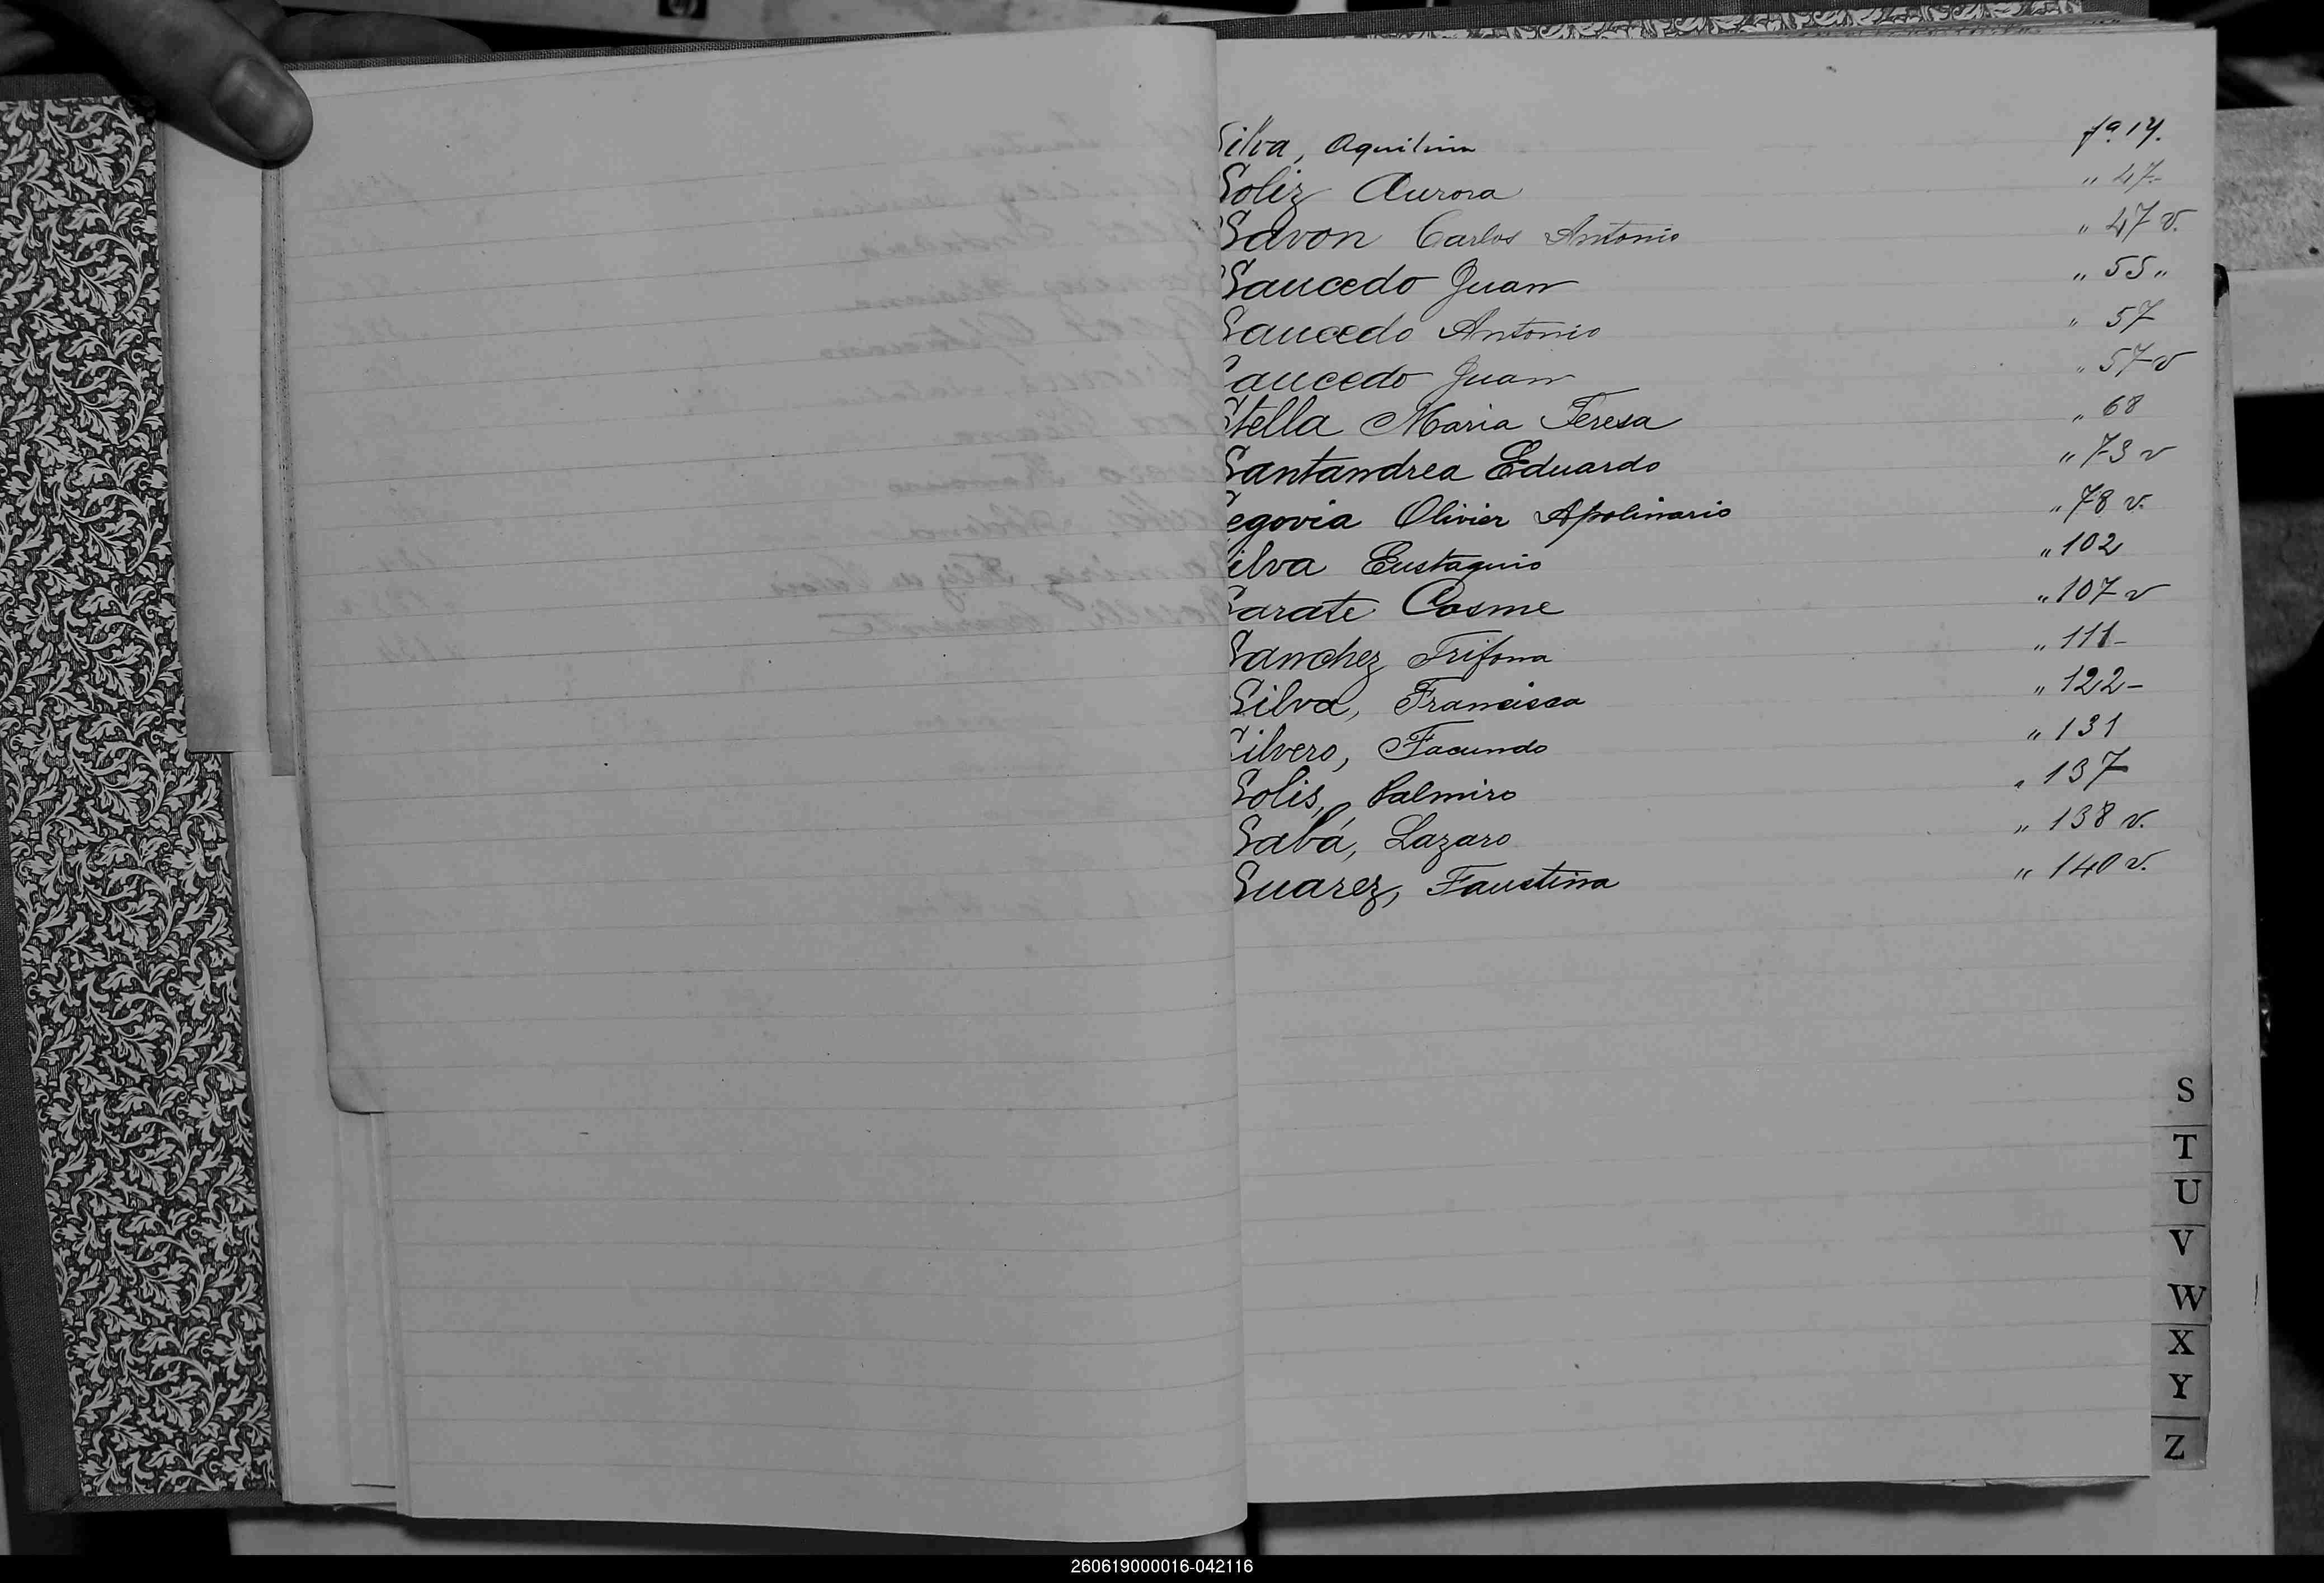 Silva, Aquilina fª. 14.
Soliz Aurora " 47-
Savon Carlos Antonio " 47 v.
Saucedo Juan " 55 "
Saucedo Antonio " 57
Saucedo Juan " 57 v
Stella Maria Teresa " 68
Santandrea Eduardo " 73 v
Segovia Olivier Apolinario " 78 v.
Silva Eustaquio " 102
Sarate Cosme " 107 v
Sanchez Trifona " 111-
Silva, Francisca " 122-
Silvero, Facundo " 131
Solis, Palmiro " 137
Sabá, Lazaro " 138 v.
Suarez, Faustina " 140 v.
S
T
U
V
W
X
Y
Z
260619000016-042116